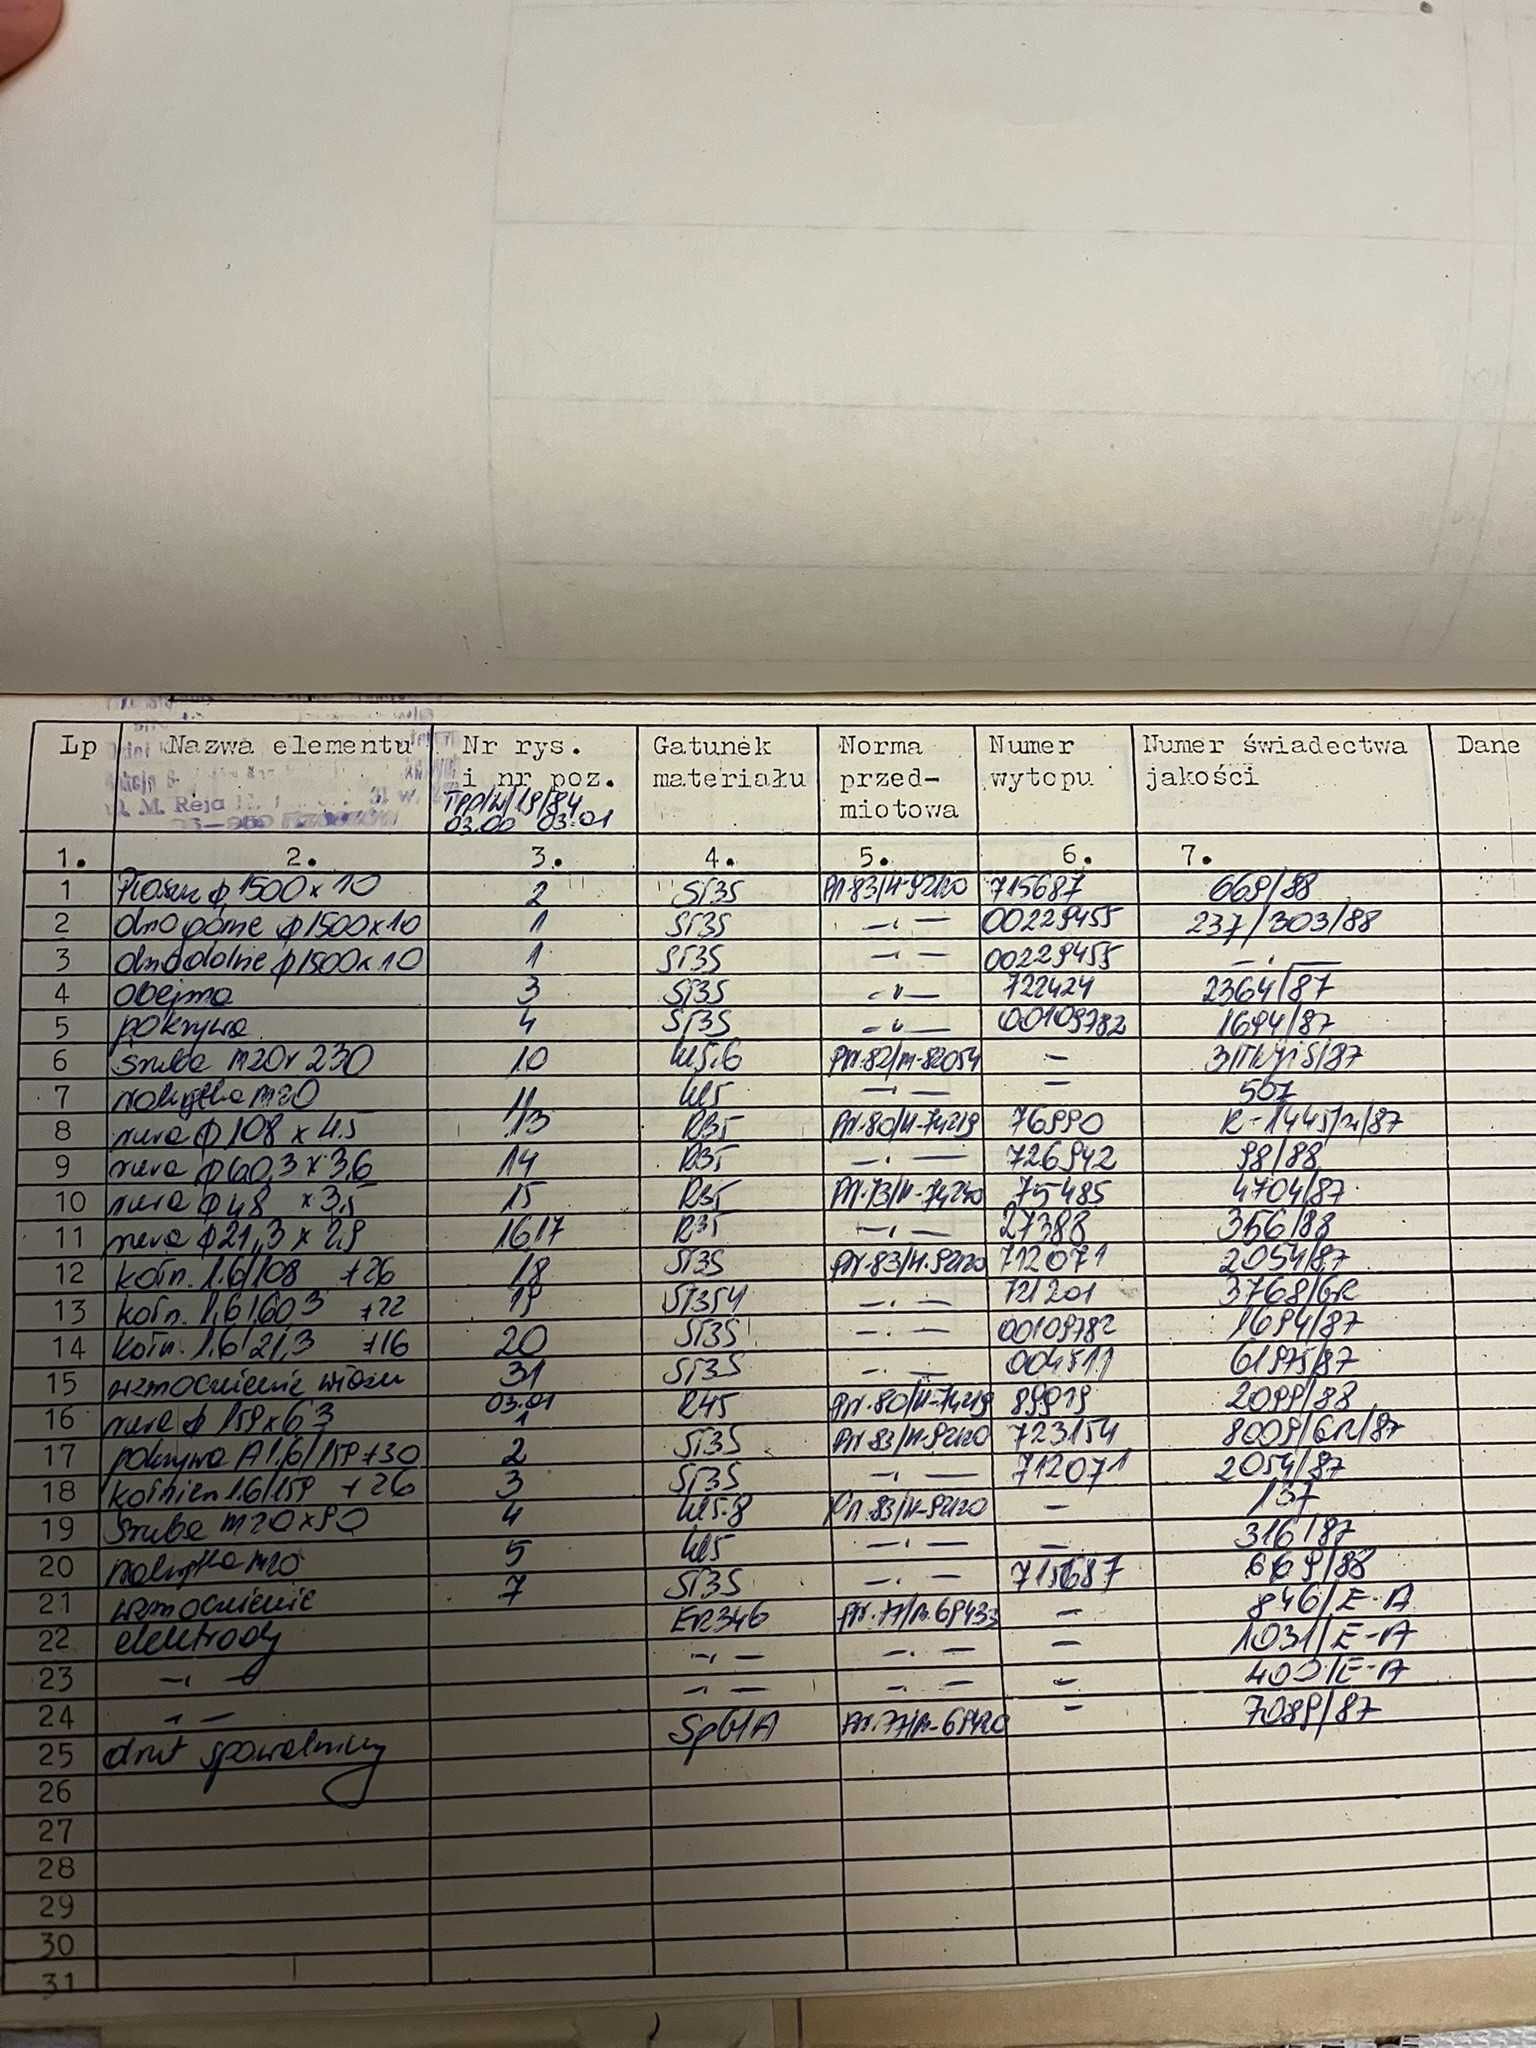 Lp Nazwa elementu Nr rys. i nr poz. Gatunek materiału Norma przed-miotowa Numer wytopu Numer świadectwa jakości Dane
M. Reja
03.00 03.01
1. 2. 3. 4. 5. 6. 7.
1 Płaszcz ϕ 1500 x 10 2 St3S PN-83/H-92120 715687 669/88
2 dno górne ϕ 1500x10 1 St3S -"- 00229455 237/303/88
3 dno dolne ϕ 1500x10 1 St3S -"- 00229455 -"-
4 obejma 3 St3S -"- 722424 2364/87
5 pokrywa 4 St3S -"- 00109782 1694/87
6 śruba M20x230 10 kl5.6 PN-82/M-82054 - /87
7 nakrętka M20 11 kl5 -"- - 507
8 rura ϕ 108 x 4.5 13 R35 PN-80/H-74219 76990 R-1445/ /87
9 rura ϕ 60,3 x 3,6 14 R35 -"- 726942 98/88
10 rura ϕ 48 x 3,5 15 R35 PN-73/H-74240 75485 4704/87
11 rura ϕ 21,3 x 2,9 16,17 R35 -"- 27388 356/88
12 kołn. 1.6/108 +26 18 St3S PN-83/H-92120 712071 2054/87
13 kołn. 1,6/60 3 +22 19 -"- 721201 3768/GR
14 kołn. 1,6/21,3 +16 20 St3S -"- 00109782 1694/87
15 wzmocnienie włazu 31 St3S -"- 004511 61975/87
16 rura ϕ 159x6 3 03.01 1 R45 PN-80/H-74219 89019 2099/88
17 pokrywa A 1.6/159 +30 2 St3S PN-83/H-92120 723154 8009/GR/87
18 kołnierz 1.6/159 +26 3 St3S -"- 712071 2054/87
19 śruba M20x90 4 kl5.8 PN-83/H-92120 - 137
20 nakrętka M20 5 kl5 -"- - 316/87
21 wzmocnienie 7 St3S -"- 715687 669/88
22 elektrody ER346 PN-77/M-69433 - 846/E-A
23 -"- -"- -"- - 1031/E-A
24 -"- -"- -"- - 400/E-A
25 drut spawalniczy SpG1A PN-77/M-69420 - 7089/87
26
27
28
29
30
31